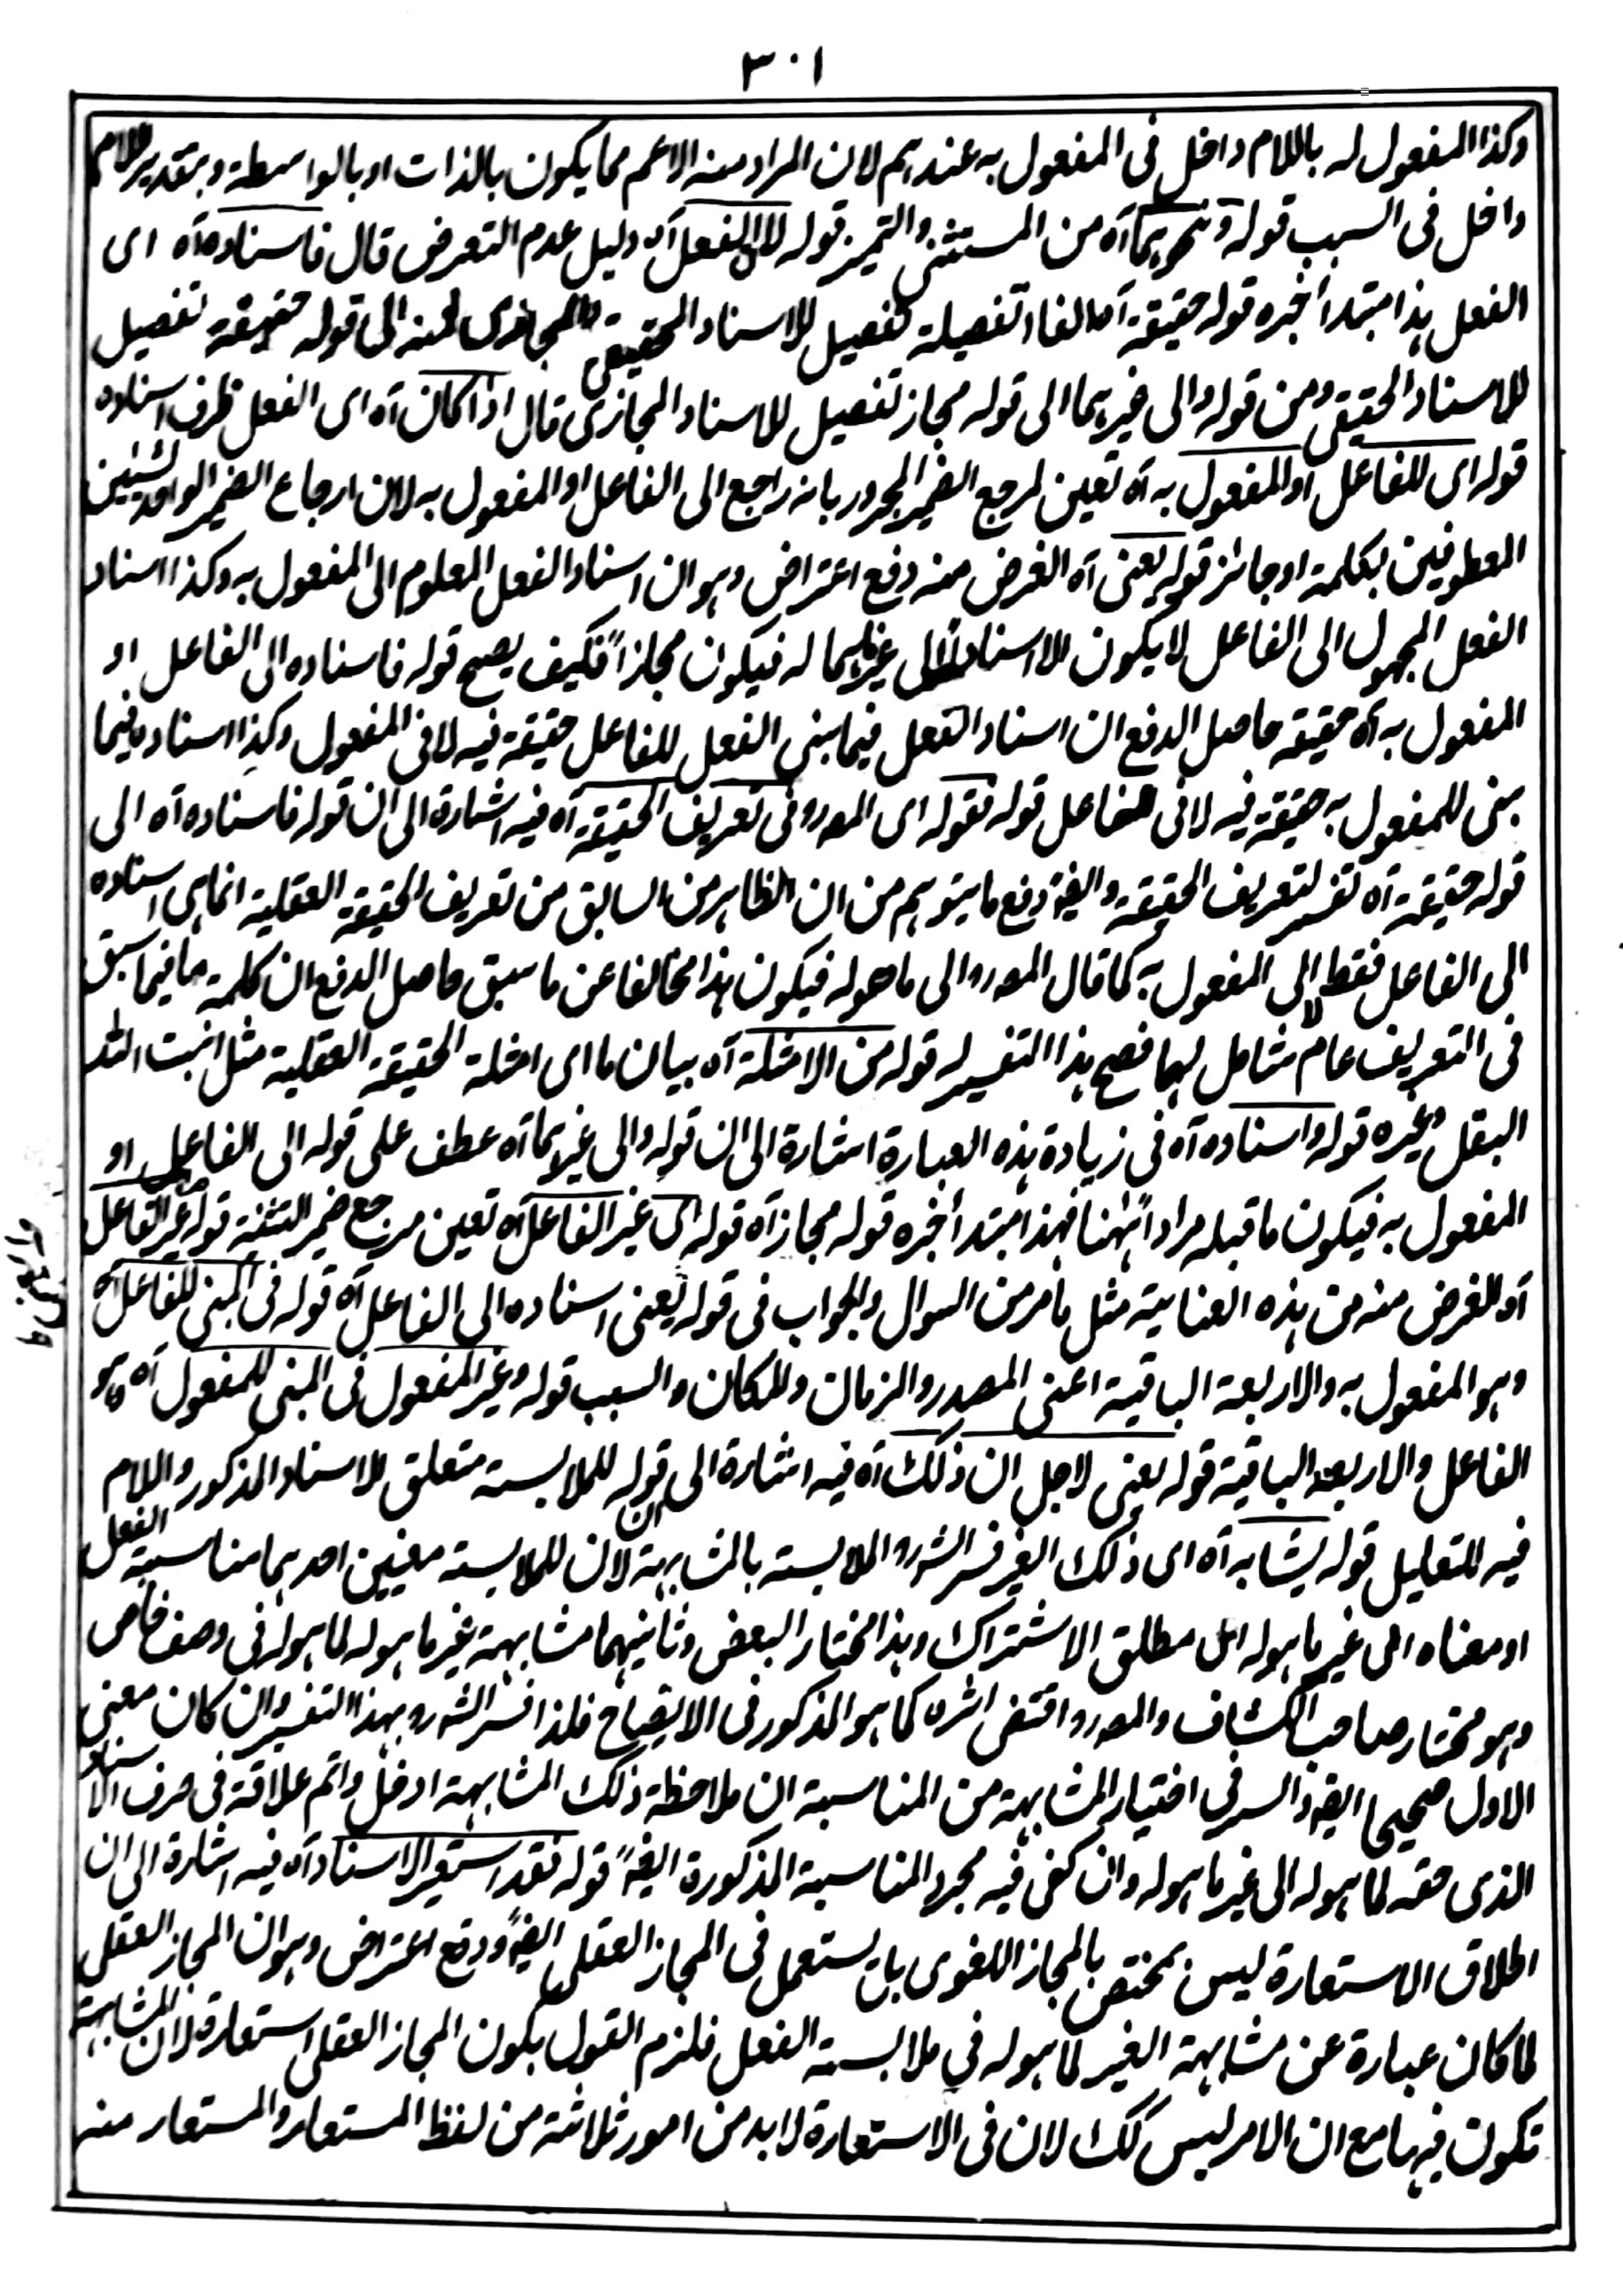 ٣٠١
وكذا المفعول له باللام داخل فى المفعول به عندهم لان المراد منه الاعم مما يكون بالذات او بالواسطة وبتقدير اللام
داخل فى السبب قوله ونحوهما آه من المستثنى والتميز قوله لان الفعل آه دليل عدم التعرض قال فاسناده آه اى
الفعل هذا مبتدأ خبره قوله حقيقة آه الفاء تفصيلة تفصيل للاسناد الحقيقى والمجازى فمنه الى قوله حقيقة تفصيل
للاسناد الحقيقى ومن قوله والى غيرهما الى قوله مجاز تفصيل للاسناد المجازى قال اذا كان آه اى الفعل ظرف اسناده
قوله اى للفاعل او المفعول به آه تعين لمرجع الضمير المجرور بانه راجع الى الفاعل او المفعول به لان ارجاع الضمير الواحد لشيئين
المعطوفين بكلمة او جائز قوله يعنى آه الغرض منه دفع اعتراض وهو ان اسناد الفعل المعلوم الى المفعول به وكذا اسناد
الفعل المجهول الى الفاعل لا يكون الا اسنادا الى غير ما له فيكون مجازاً فكيف يصح قوله فاسناده الى الفاعل او
المفعول به آه حقيقة حاصل الدفع ان اسناد الفعل فيما بنى الفعل للفاعل حقيقة فيه لا فى المفعول وكذا اسناده فيما
بنى للمفعول به حقيقة فيه لا فى الفاعل قوله فقوله اى المصر فى تعريف الحقيقة آه فيه اشارة الى ان قوله فاسناده آه الى
قوله حقيقة آه تفسير لتعريف الحقيقة وايضا دفع ما يتوهم من ان الظاهر من السابق من تعريف الحقيقة العقلية انما هى اسناده
الى الفاعل فقط لا الى المفعول به كما قال المصر الى ما هو له فيكون هذا مخالفا عن ما سبق حاصل الدفع ان كلمة ما فيما سبق
فى التعريف عام شامل لهما فصح هذا التفسير له قوله من الامثلة آه بيان ما اى امثلة الحقيقة العقلية مثل انبت الله
البقل وغيره قوله واسناده آه فى زيادة هذه العبارة اشارة الى ان قوله والى غيرهما آه عطف على قوله الى الفاعل او
المفعول به فيكون ما قبله مراداً ههنا فهذا مبتدأ خبره قوله مجاز آه قوله اى غير الفاعل آه تعين مرجع ضمير التثنية قوله غير الفاعل
آه الغرض منه من هذه العناية مثل ما مر من السوال والجواب فى قوله يعنى اسناده الى الفاعل آه قوله فى المبنى للفاعل آه
وهو المفعول به والاربعة الباقية اعنى المصدر والزمان والمكان والسبب قوله وغير المفعول فى المبنى للمفعول آه وهو
الفاعل والاربعة الباقية قوله يعنى لاجل ان ذلك آه فيه اشارة الى ان قوله للملابسة متعلق للاسناد المذكور واللام
فيه للتعليل قوله يشابه آه اى ذلك الغير فسر الشر الملابسة بالمشابهة لان للملابسة معنيين احدهما مناسبة الفعل
او معناه الى غير ما هو له اى مطلق الاشتراك وهذا مختار البعض وثانيهما مشابهة غير ما هو له لما هو له فى وصف خاص
وهو مختار صاحب الكشاف والمصر اقتفى اثره كما هو المذكور فى الايضاح فلذا فسر الشر بهذا التفسير وان كان معنى
الاول صحيحا ايضا والسر فى اختيار المشابهة من المناسبة ان ملاحظة ذلك المشابهة ادخل واتم علاقة فى صرف الاسناد
الذى حقه لما هو له الى غير ما هو له وان كفى فيه مجرد المناسبة المذكورة ايضاً قوله فقد استعير الاسناد آه فيه اشارة الى ان
اطلاق الاستعارة ليس بمختص بالمجاز اللغوى بل يستعمل فى المجاز العقلى ايضاً ودفع اعتراض وهو ان المجاز العقلى
لما كان عبارة عن مشابهة الغير لما هو له فى ملابسة الفعل فلزم القول بكون المجاز العقلى استعارة لان المشابهة
تكون فيها مع ان الامر ليس كك لان فى الاستعارة لا بد من امور ثلاثة من لفظ المستعار والمستعار منه